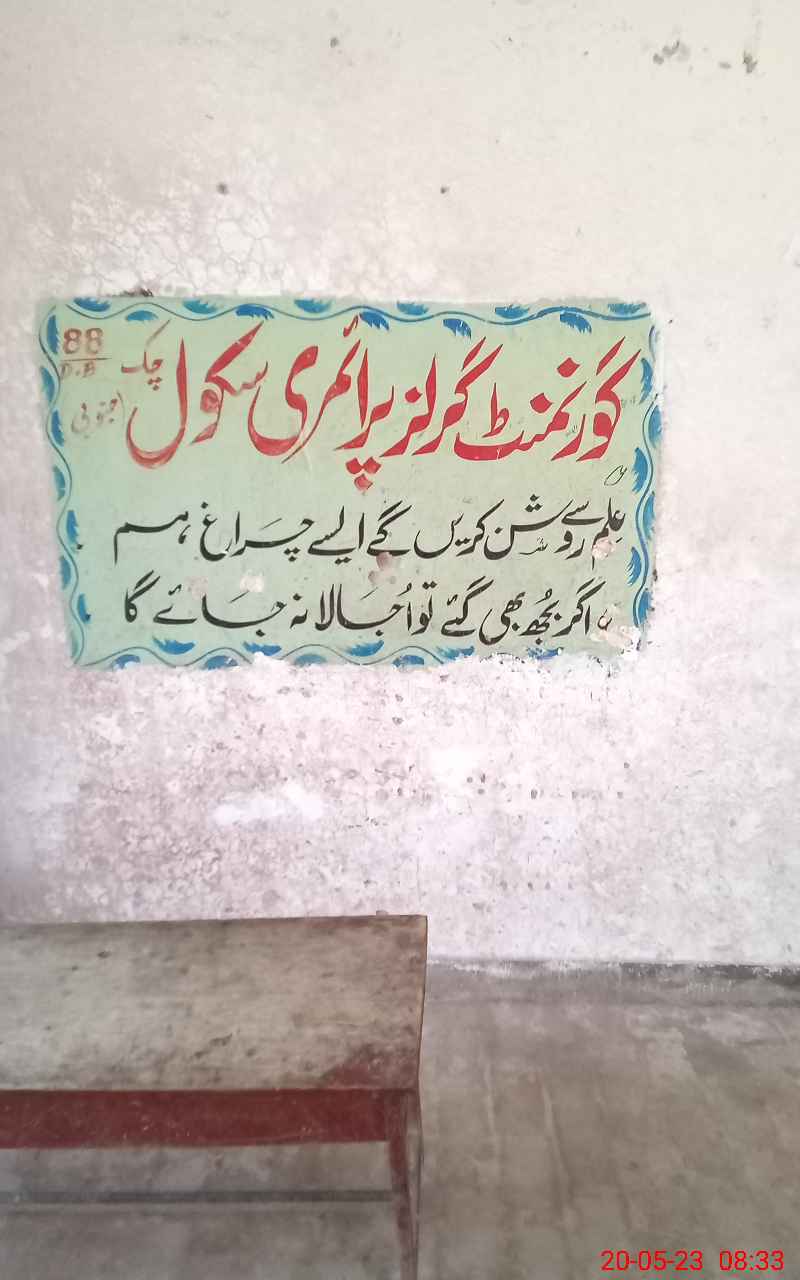 گورنمنٹ گرلز پرائمری سکول چک 88
D.B
جنوبی
علم سے روشن کریں گے ایسے چراغ ہم
اگر بُجھ بھی گئے تو اُجالا نہ جائے گا
20-05-23 08:33